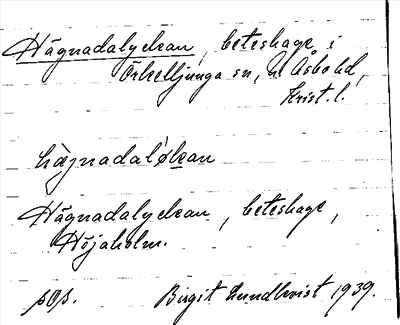 Hägnadalyckan, beteshage i
Örkelljunga sn, N. Åsbo hd,
Krist. l.
hägnadal'økan
Hägnadalyckan, beteshage,
Höjaholm.
sOs. Birgit Lundkvist 1939.